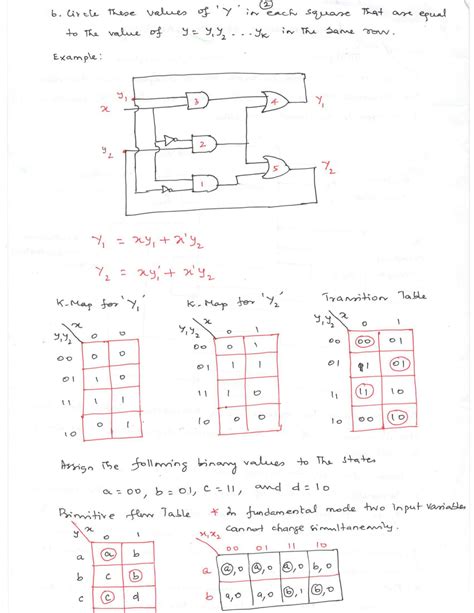 b. Circle these values of 'Y' in each square that are equal
②
to the value of y = y₁y₂ ... yₖ in the same row.
Example:
y₁
x
y₂
3
4
Y₁
2
1
5
Y₂
Y₁ = xy₁ + x'y₂
Y₂ = xy₁' + x'y₂
K-Map for 'Y₁'
x
y₁y₂ 0 0
00 0 0
01 1 0
11 1 1
10 0 1
K-Map for 'Y₂'
x
y₁y₂ 0 1
00 0 1
01 1 1
11 1 0
10 0 0
Transition Table
y₁y₂ x
0 1
00 00 01
01 11 01
11 11 10
10 00 10
Assign the following binary values to the states
a = 00, b = 01, c = 11, and d = 10
Primitive flow Table
y x 0 1
a a b
b c b
c c d
* In fundamental mode two input variables
cannot change simultaneously.
x₁x₂
00 01 11 10
a a,0 a,0 a,0 b,0
b a,0 a,0 b,1 b,0